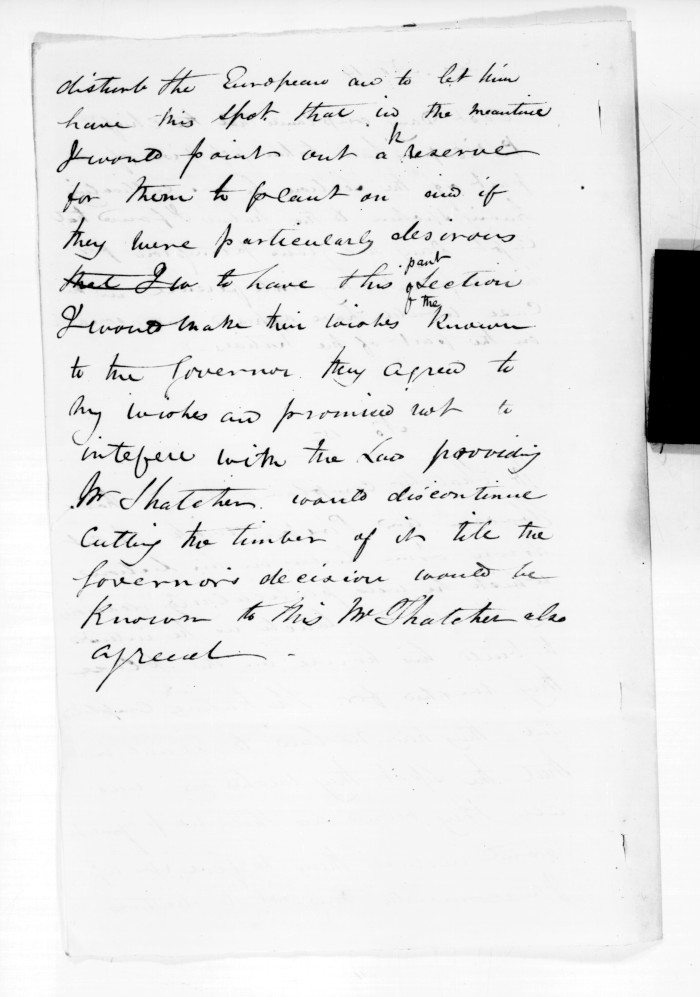 disturb the European and to let him
have this spot that in the meantime
I would point out a reserve
for them to plant on and if
they were particularly desirous
that I w to have this part of the Section
I would make their wishes known
to the Governor they agreed to
my wishes and promised not to
intefere with the Land providing
Mr Thatcher would discontinue
Cutting the timber of it till the
Governor's decision would be
Known to this Mr Thatcher also
agreed -